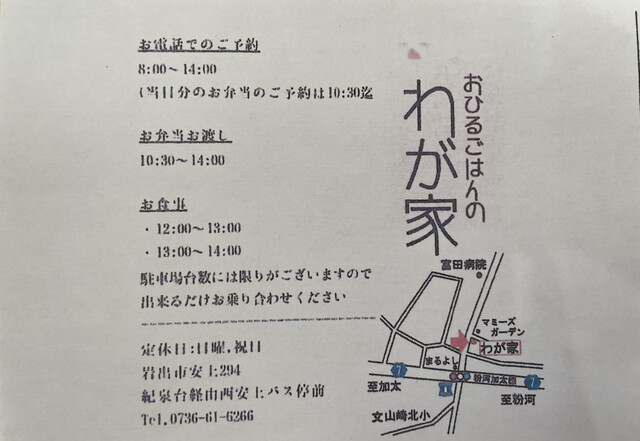 お電話でのご予約
8:00～14:00
(当日分のお弁当のご予約は10:30迄
お弁当お渡し
10:30～14:00
お食事
・12:00～13:00
・13:00～14:00
駐車場台数には限りがございますので
出来るだけお乗り合わせください
定休日:日曜,祝日
岩出市安上294
紀泉台経由西安上バス停前
Tel.0736-61-6266
おひるごはんの
わが家
富田病院
マミーズ
ガーデン
わが家
まるよし
7
粉河加太線
7
至加太
至粉河
文山崎北小